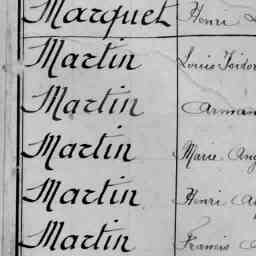 Marquet Henri
Martin Louis Isidor
Martin Arman
Martin Marie Ang
Martin Henri
Martin Francis